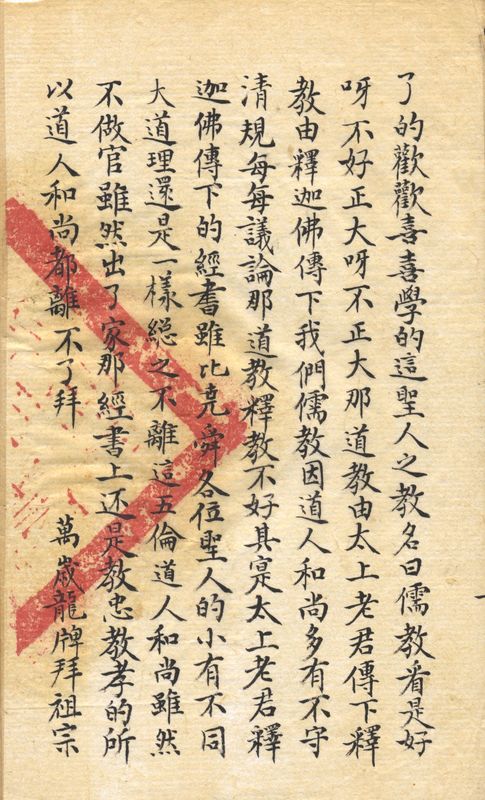 了的歡歡喜喜學的這聖人之教名曰儒教看是好
呀不好正大呀不正大那道教由太上老君傳下釋
教由釋迦佛傳下我們儒教因道人和尚多有不守
清規每每議論那道教釋教不好其寔太上老君釋
迦佛傳下的經書雖比堯舜各位聖人的小有不同
大道理還是一樣緫之不離這五倫道人和尚雖然
不做官雖然出了家那經書上还是教忠教孝的所
以道人和尚都離不了拜 萬歲龍牌拜祖宗